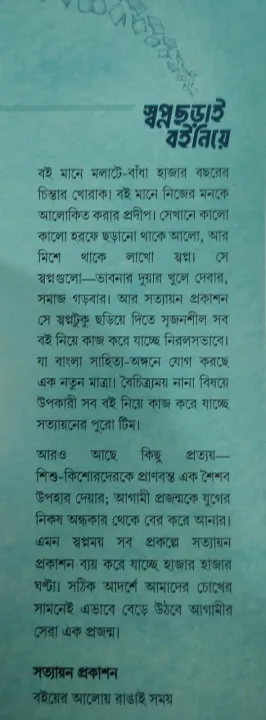 স্বপ্নছড়াই
বইনিয়ে
বই মানে মলাটে-বাঁধা হাজার বছরের
চিন্তার খোরাক। বই মানে নিজের মনকে
আলোকিত করার প্রদীপ। সেখানে কালো
কালো হরফে ছড়ানো থাকে আলো, আর
মিশে থাকে লাখো স্বপ্ন। সে
স্বপ্নগুলো—ভাবনার দুয়ার খুলে দেবার,
সমাজ গড়বার। আর সত্যায়ন প্রকাশন
সে স্বপ্নটুকু ছড়িয়ে দিতে সৃজনশীল সব
বই নিয়ে কাজ করে যাচ্ছে নিরলসভাবে।
যা বাংলা সাহিত্য-অঙ্গনে যোগ করছে
এক নতুন মাত্রা। বৈচিত্র্যময় নানা বিষয়ে
উপকারী সব বই নিয়ে কাজ করে যাচ্ছে
সত্যায়নের পুরো টিম।
আরও আছে কিছু প্রত্যয়—
শিশু-কিশোরদেরকে প্রাণবন্ত এক শৈশব
উপহার দেয়ার; আগামী প্রজন্মকে যুগের
নিকষ অন্ধকার থেকে বের করে আনার।
এমন স্বপ্নময় সব প্রকল্পে সত্যায়ন
প্রকাশন ব্যয় করে যাচ্ছে হাজার হাজার
ঘণ্টা। সঠিক আদর্শে আমাদের চোখের
সামনেই এভাবে বেড়ে উঠবে আগামীর
সেরা এক প্রজন্ম।
সত্যায়ন প্রকাশন
বইয়ের আলোয় রাঙাই সময়